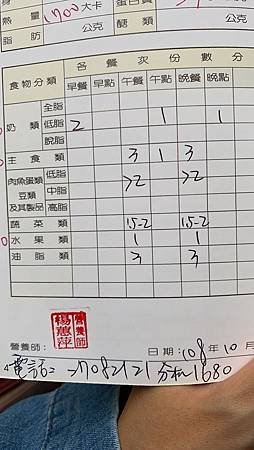 熱量 1700 大卡
脂肪 公克 醣類 公克
各餐次份數分
食物分類 早餐 早點 午餐 午點 晚餐 晚點
奶類 全脂
低脂 2 1 1
脫脂
主食類 3 1 3
肉魚蛋類 豆類 及其製品 低脂 >2 >2
中脂
高脂
蔬菜類 1.5-2 1.5-2
水果類 1 1
油脂類 3 3
營養師 楊惠萍
營養師： 日期：108年10月
電話： 27082121 分机 1680